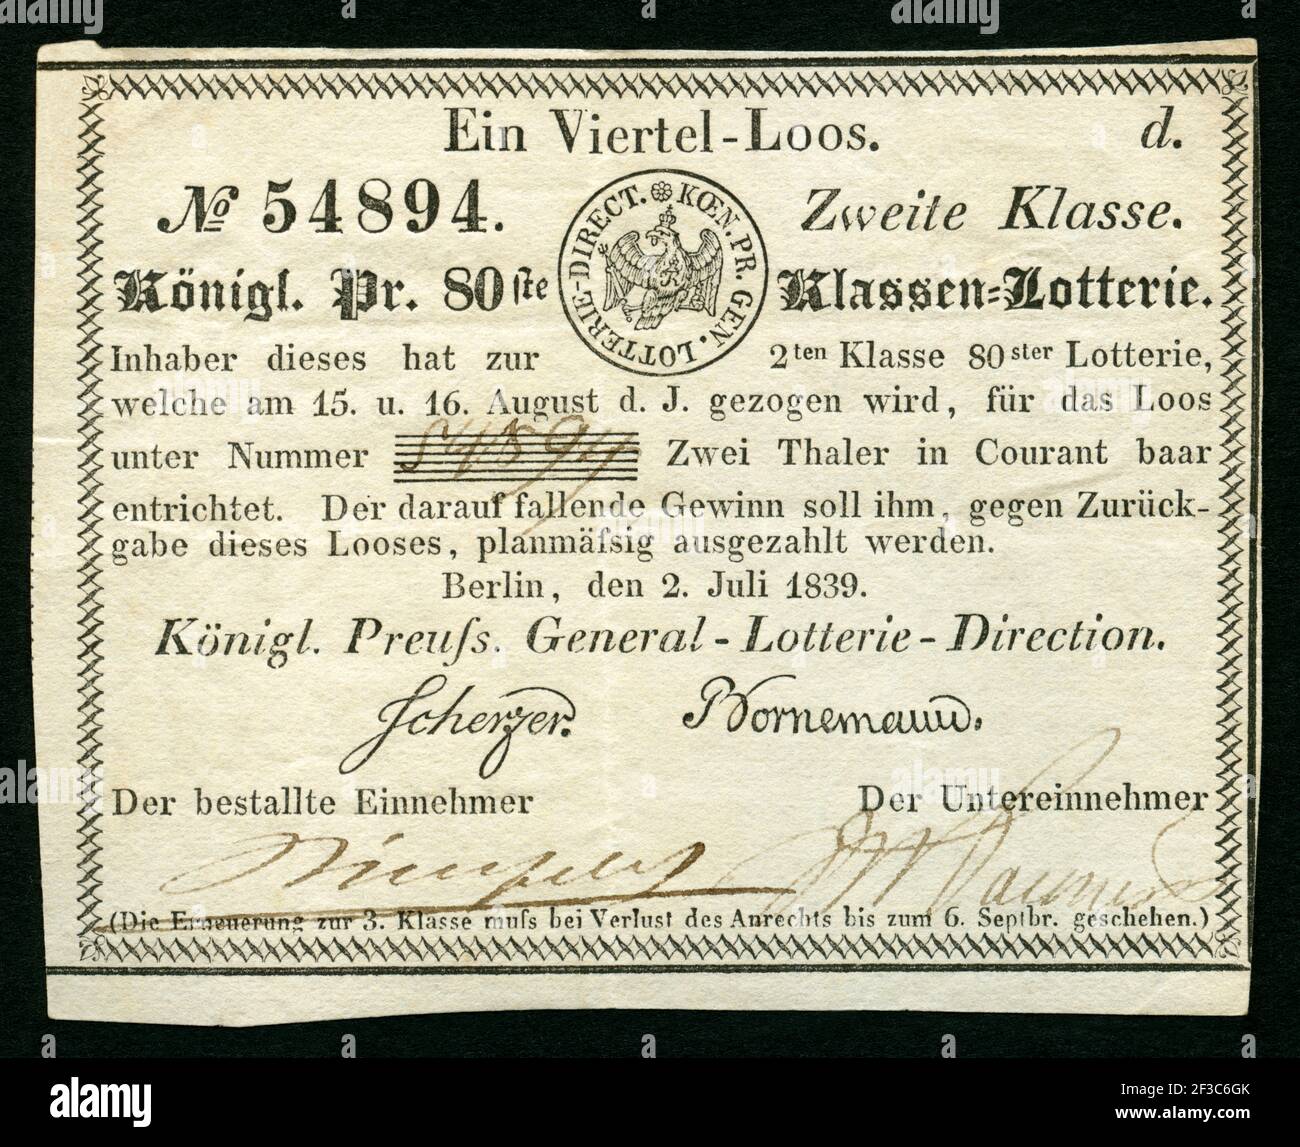 Ein Viertel-Loos. d.
№ 54894. Zweite Klasse.
LOTTERIE-DIRECT. KŒN. PR. GEN.
Königl. Pr. 80ste Klassen=Lotterie.
Inhaber dieses hat zur 2ten Klasse 80ster Lotterie,
welche am 15. u. 16. August d. J. gezogen wird, für das Loos
unter Nummer 54894 Zwei Thaler in Courant baar
entrichtet. Der darauf fallende Gewinn soll ihm, gegen Zurück-
gabe dieses Looses, planmäſsig ausgezahlt werden.
Berlin, den 2. Juli 1839.
Königl. Preuſs. General-Lotterie-Direction.
Scherzer. Bornemann.
Der bestallte Einnehmer Der Untereinnehmer
(Die Erneuerung zur 3. Klasse muſs bei Verlust des Anrechts bis zum 6. Septbr. geschehen.)
alamy
Image ID: 2F3C6GK
www.alamy.com